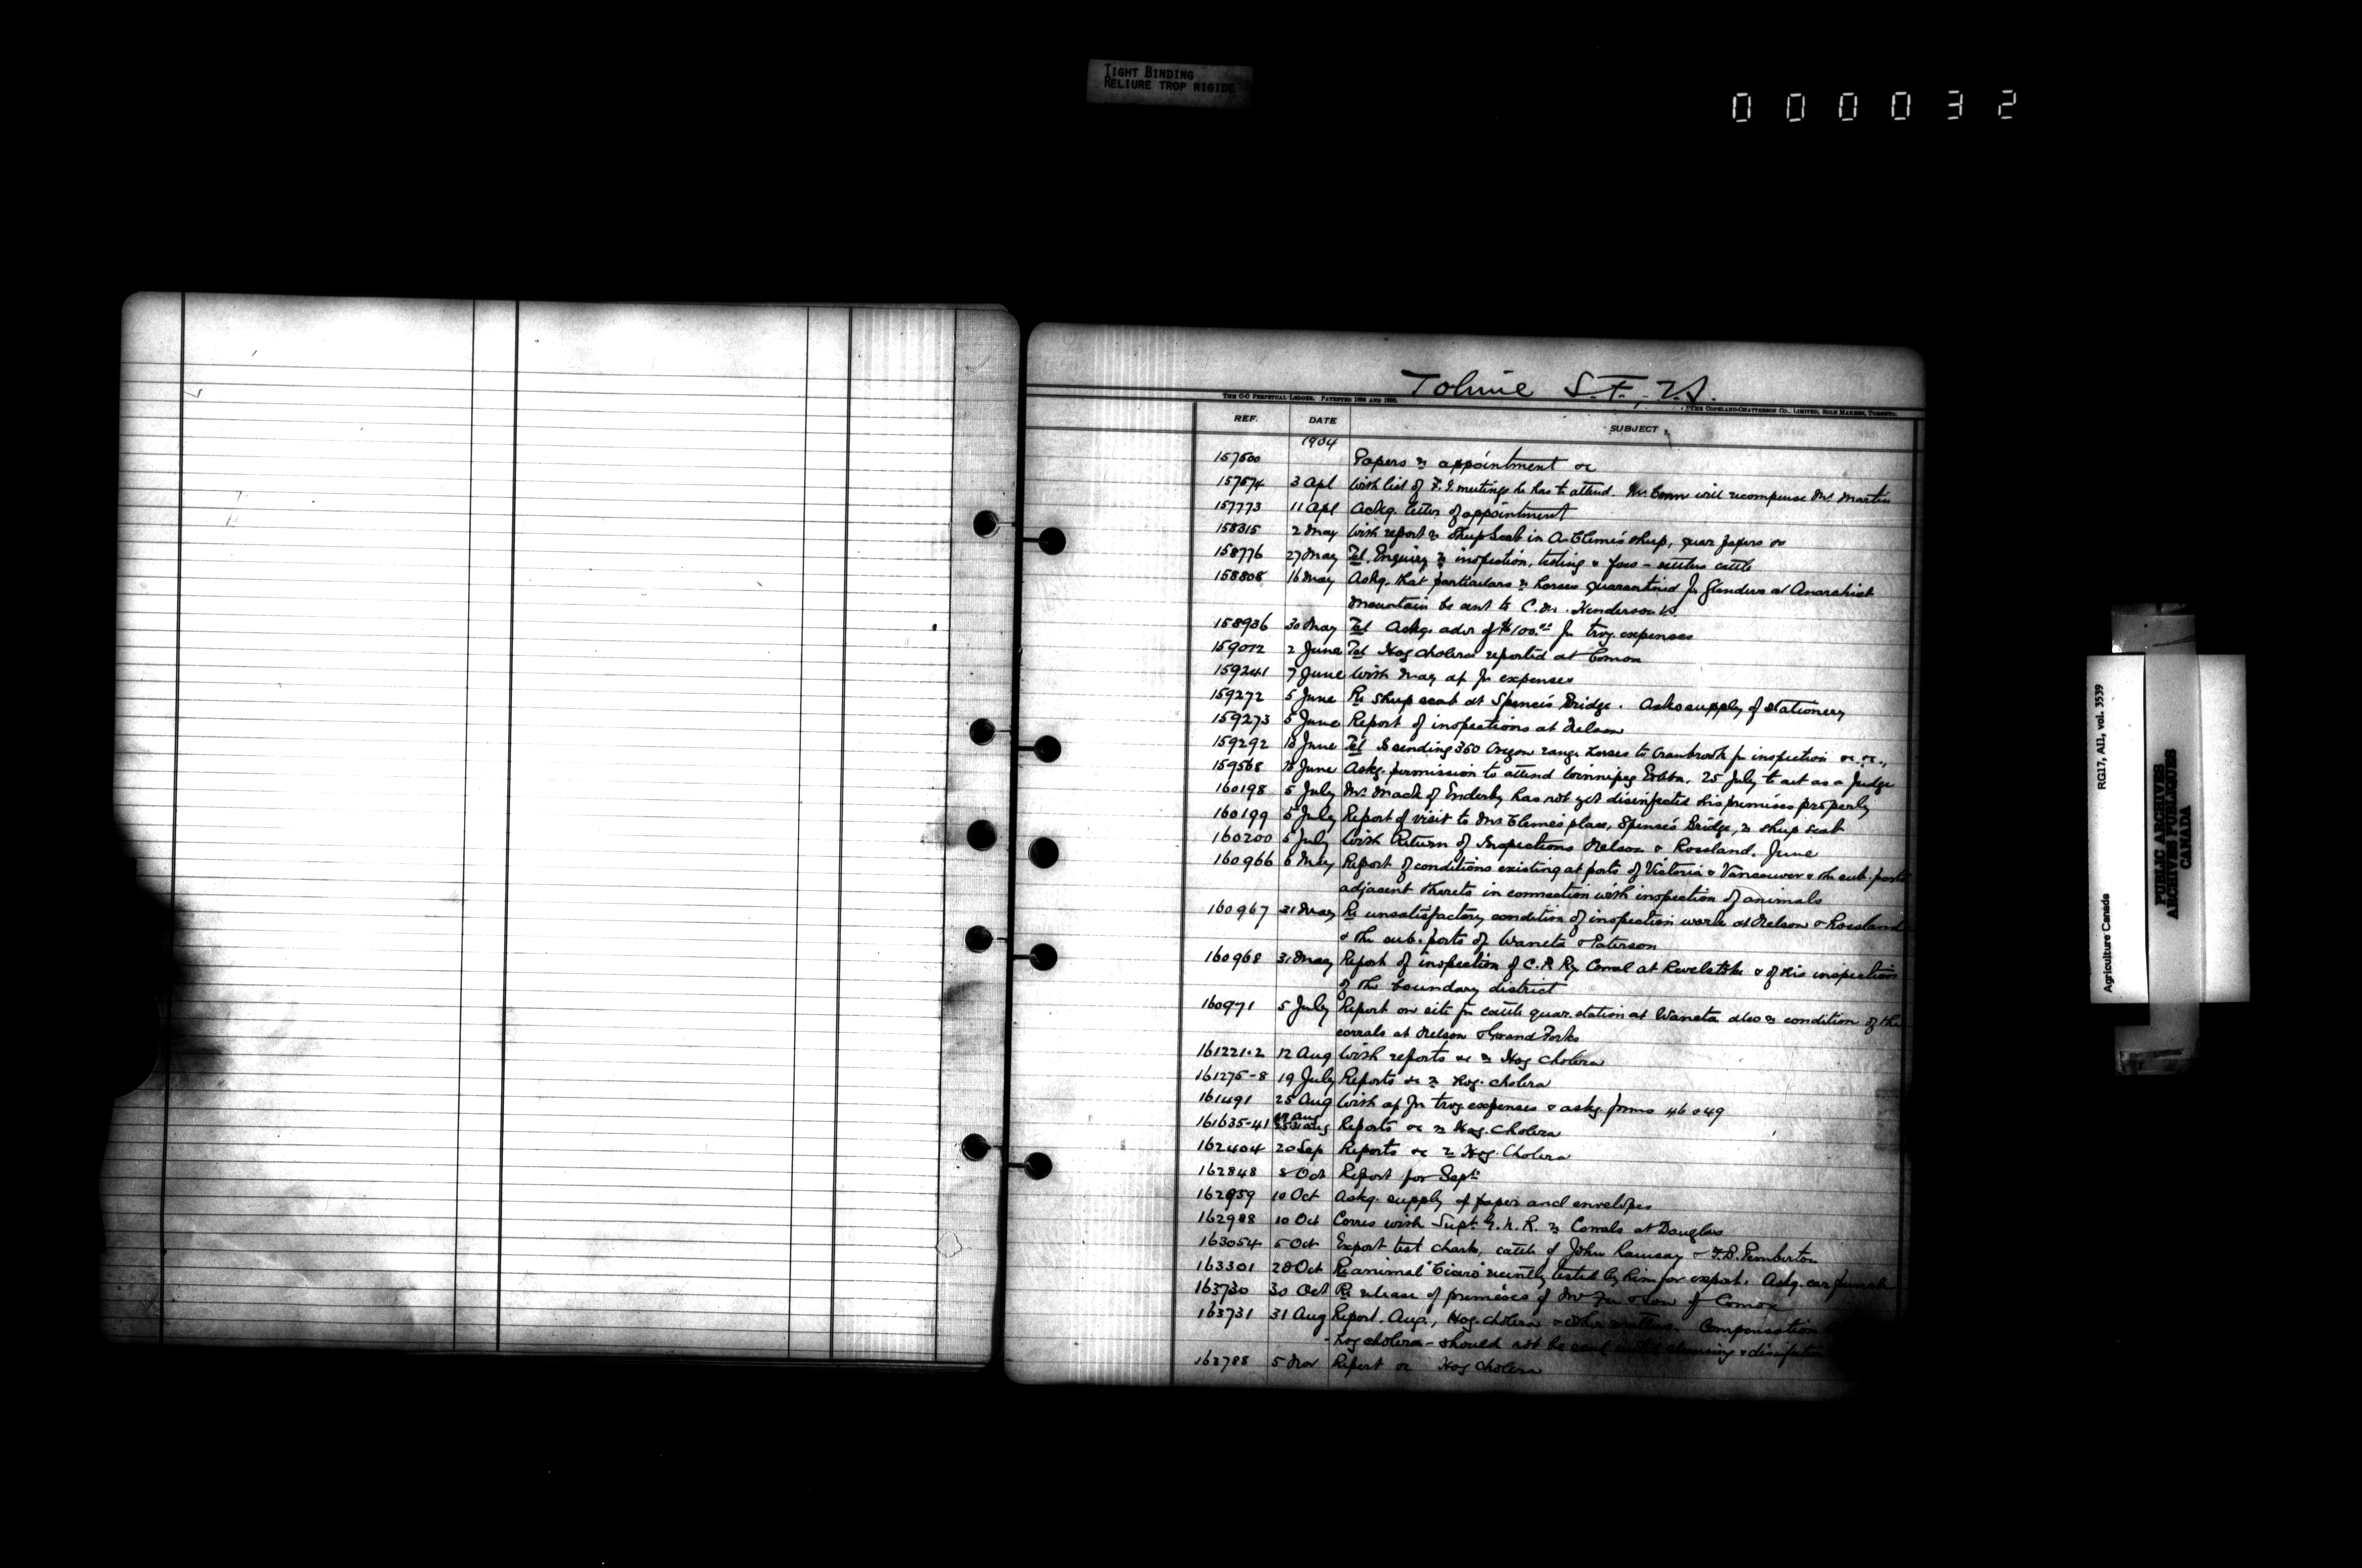 TIGHT BINDING
RELIURE TROP RIGIDE
000032
Tolmie S.F., V.S.
THE C-C PERPETUAL LEDGER. PATENTED 1894 AND 1900.
THE COPELAND-CHATTERSON CO., LIMITED, SOLE MAKERS, TORONTO.
REF. DATE SUBJECT
1904
157500 Papers re appointment &c
157574 3 Apl With list of F.I. meetings he has to attend. Mr will recompense Mr Martin
157773 11 Apl Ackg. letter of appointment
158315 2 May With report re Sheep Scab in A. Clemes sheep, quar papers &c
158776 27 May Tel. Enquiry re inspection, testing & fees - settlers cattle
158808 16 May Askg. that particulars re horses quarantined for Glanders at Anarchist
Mountain be sent to C. M. Henderson V.S.
158936 30 May Tel Askg. adv of $100.00 for trvg. expenses
159072 2 June Tel Hog cholera reported at Comox
159241 7 June With May a/c for expenses
159272 5 June Re sheep scab at Spence's Bridge. Asks supply of stationery
159273 5 June Report of inspections at Nelson
159292 13 June Tel Is sending 350 Oregon range horses to Cranbrook for inspection &c &c.,
159568 June Askg. permission to attend Winnipeg Exbtn. 25 July to act as a Judge
160198 5 July Mr. Mack of Enderby has not yet disinfected his premises properly
160199 5 July Report of visit to Mr Clemes place, Spence's Bridge, re sheep scab
160200 5 July With Return of Inspections Nelson & Rossland, June
160966 6 May Report of conditions existing at ports of Victoria & Vancouver & the sub-ports
adjacent thereto in connection with inspection of animals
160967 31 May Re unsatisfactory condition of inspection work at Nelson & Rossland
& the sub-ports of Waneta & Paterson
160968 31 May Report of inspection of C.P. Ry. Corral at Revelstoke & of his inspection
of the boundary district
160971 5 July Report on site for cattle quar. station at Waneta also re condition of the
corrals at Nelson & Grand Forks
161221-2 12 Aug With reports &c re Hog Cholera
161275-8 19 July Reports &c re Hog. cholera
161491 25 Aug With a/c for trvg expenses & askg. forms 46 & 49
161635-41 Aug Reports &c re Hog. Cholera
162404 20 Sep Reports &c re Hog. Cholera
162848 8 Oct Report for Sept.
162959 10 Oct Askg. supply of paper and envelopes
162988 10 Oct Corres with Supt. G.N.R. re Corrals at Douglas
163054 5 Oct Export test charts, cattle of John Ramsay & F.B. Pemberton
163301 28 Oct Re animal recently tested by him for export. Askg. ear
163730 30 Oct Re release of premises of Mr & Son of Comox
163731 31 Aug Report. Aug., Hog cholera & other matters. Compensation
- hog cholera - should not be sent until cleansing & disinfection
163788 5 Nov Report &c Hog Cholera
Agriculture Canada RG17, AII, vol. 3539
PUBLIC ARCHIVES
ARCHIVES PUBLIQUES
CANADA